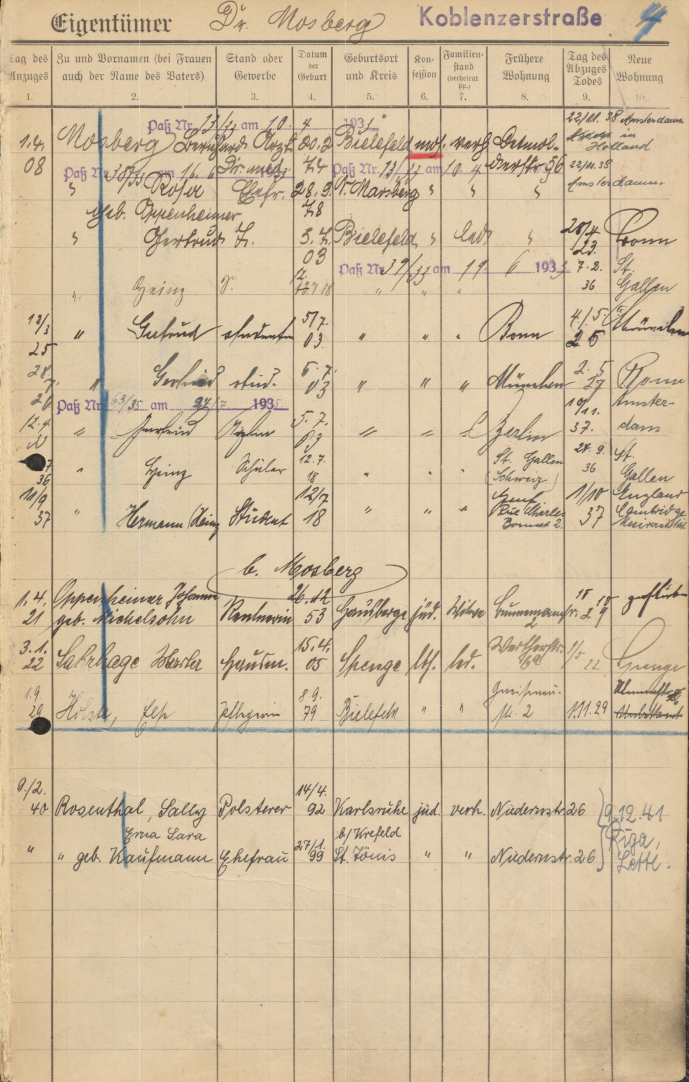 Eigentümer Dr. Mosberg Koblenzerstraße 4
Tag des Anzuges Zu und Vornamen (bei Frauen auch der Name des Vaters) Stand oder Gewerbe Datum der Geburt Geburtsort und Kreis Konfession Familienstand (verheirat pp.) Frühere Wohnung Tag des Abzuges Todes Neue Wohnung
1. 2. 3. 4. 5. 6. 7. 8. 9. 10.
Paß Nr. 13/33 am 10. 4 1933
22/11.38 Amsterdam
1.4. Mosberg Bernhard Arzt 20.2 Bielefeld mos. verh Detmol- in Holland
08 Dr. med. 74 derstr. 56
Paß Nr. am 16. 6 Paß Nr. 13/33 am 10 4 22/11.38
" Rosa Ehefr. 28.9. N. Marsberg " " " Amsterdam
geb. Oppenheimer 78
" Gertrud T. 5.7. Bielefeld " led. " 28/4 Bonn
03 23.
Paß Nr. 39/33 am 19 6 1933
" Heinz S. 12. " " " 7.2. St.
18 36 Gallen
13/3 " Gertrud studentin 5/7. " " " Bonn 4/5 München
25 03. 26
28/ " stud. 5.7. " " " München 2.5 Rom
7. 26 03 27
Paß Nr. 63/35 am 24/7 1935
12.4 " 5.7. " " 10/11. Amster-
03 37. dam
37 " Heinz Schüler 12.7. " " " St. Gallen 24.9. St.
36 18 (Schweiz) 36 Gallen
11/9 " Hermann Heinz Student 12/7 " " " Genf, 1/10 England
37 18 Rue Charles Bonnet 2. 37 Cambridge
Universität
b. Mosberg
1.4. Oppenheimer Johanna Rentnerin 26.12 jüd. Witwe 18 10
21 geb. Michelsohn 53 2 29
3.1. Sahrhage Hausm. 15.4. Spenge led. Wertherstr. 1/5 Spenge
22 05 22
1.9. Holste, Else Pflegerin 8.9. Bielefeld " " Gneisenau-
29 79 str. 2 1.11.29 Unbekannt
9./2. Rosenthal, Sally Polsterer 14/4. Karlsruhe jüd. verh. Niedernstr. 26 9.12.41
40 92 Riga,
Erna Sara b/ Krefeld Lettl.
" " geb. Kaufmann Ehefrau 27/1. St. Tönis " " Niedernstr. 26
99